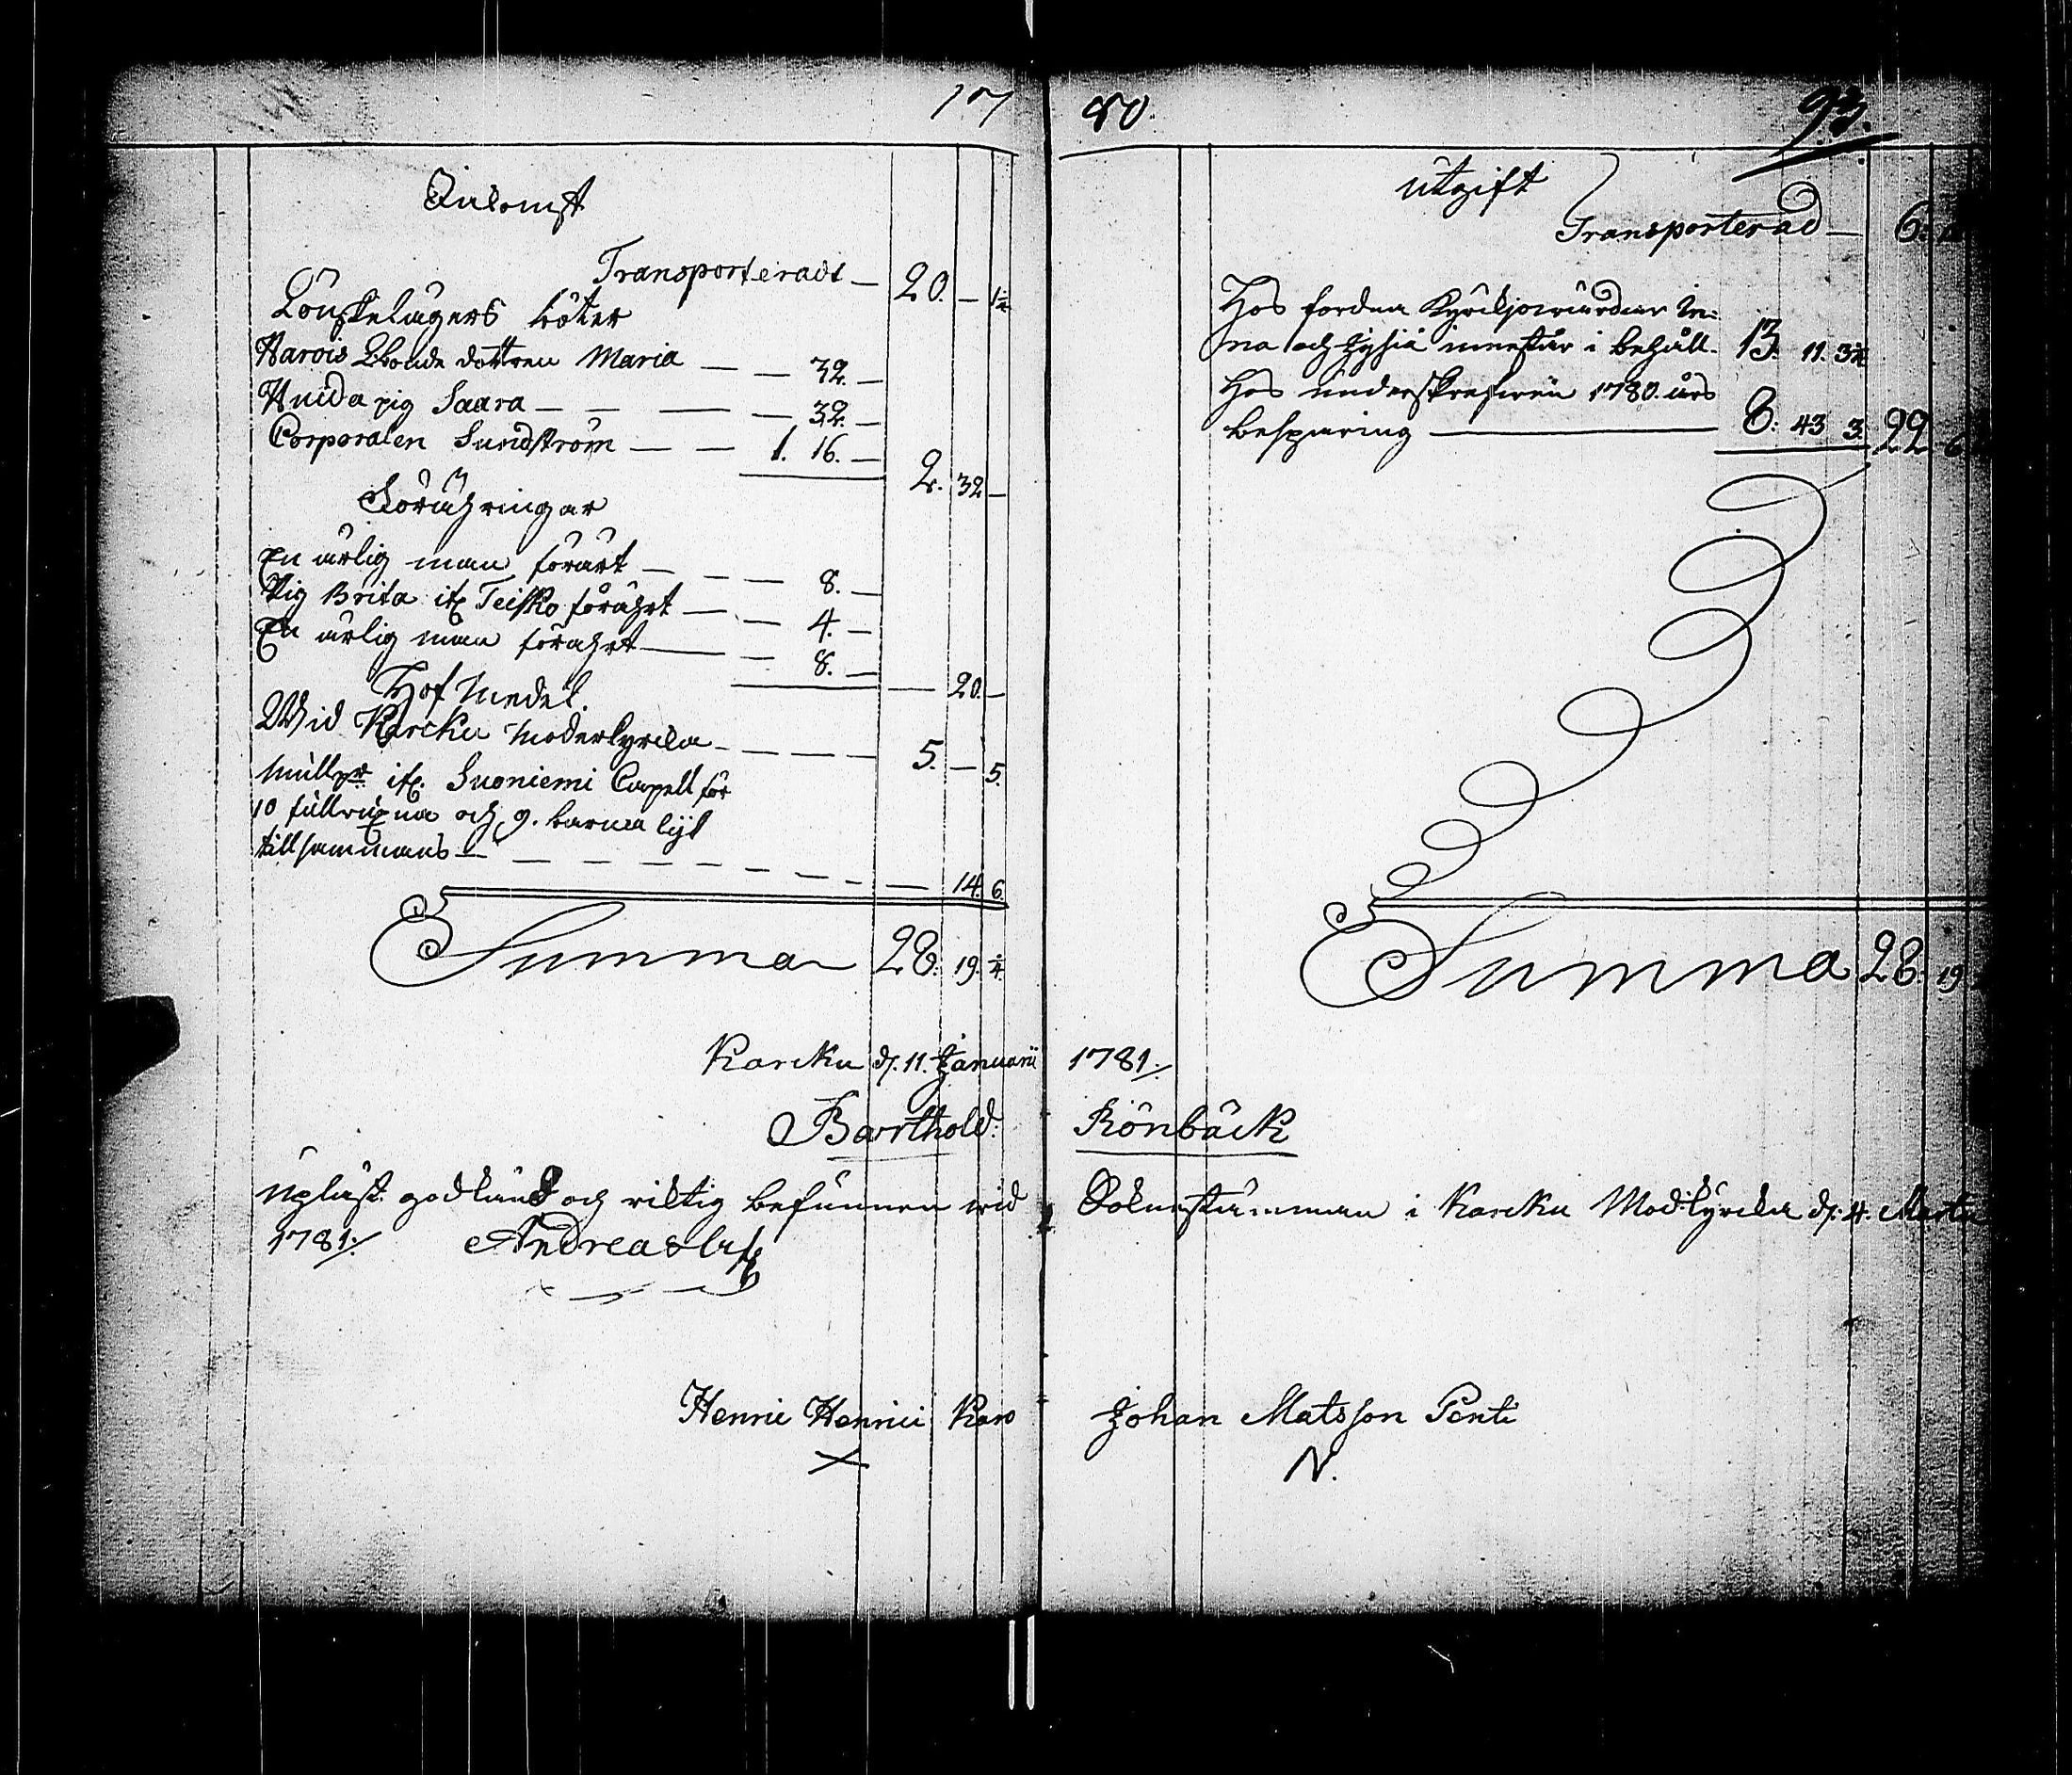 17
Inkomst
Transporteradt — 20. — 1¼
Lönskelägers böter
Harois Lbonde dottren Maria — — 32. —
Huida pig Saara — — — — 32. —
Corporalen Sundström — — 1. 16. —
2. 32 —
Förähringar
En ärlig man förärt — — — 8. —
Pig Brita ifr Teisko förährt — — 4. —
En ärlig man förährt — — 8. —
— 20. —
Håf Medel.
Wid Karcku Moderkyrcka — — — — 5. — 5.
ifr. Suoniemi Capell för
10 fullvuxna och 9. barna lijk
tillsammans — — — — — — — — 14. 6.
Summa 28. 19. ¼
80.
93.
Utgift
Transporterad — 6:
Hos fordna Kyrckjowärden
och innestår i behåll. 13. 11. 3¼
Hos underskrefwen 1780. års
besparing — 8: 43 3. 22 6
Summa 28. 19
Karcku d. 11. Januarii 1781./.
Barthold: Rönbäck
Upläst. godkänd och riktig befunnen wid Soknestämman i Karcku Mod:kyrcka d: 4. Martii
1781./. Andreas
Henric Henrici Karo Johan Matsson Penti
X N.